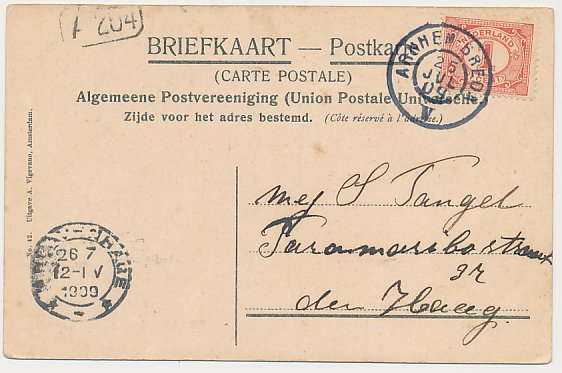 A 204
BRIEFKAART — Postkar
(CARTE POSTALE)
Algemeene Postvereeniging (Union Postale Universelle.)
Zijde voor het adres bestemd. (Côte réservé à l'adresse.)
ARNHEM-BREDA
25
JUL
09
V
NEDERLAND
No. 42. Uitgave A. Vigevano, Amsterdam.
'S GRAVENHAGE
26 7
12-1 V
1909
mej S Tangel
Paramaribostraat
92
den Haag.